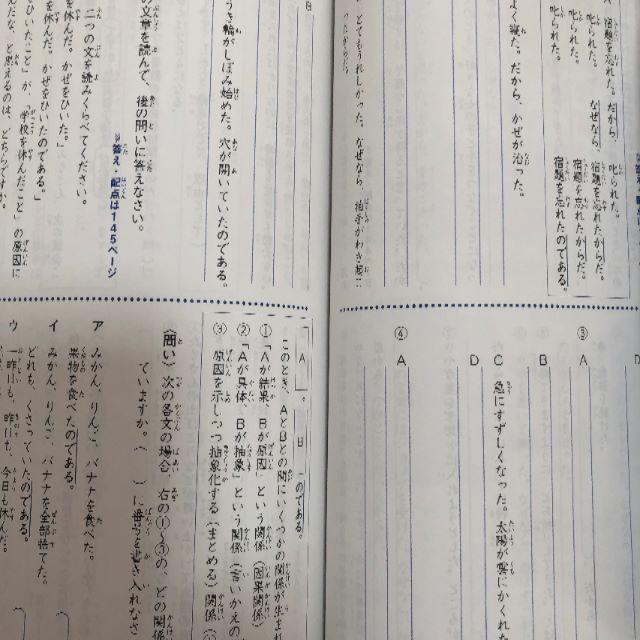 宿題を忘れた。だから、叱られた。
叱られた。なぜなら、宿題を忘れたからだ。
叱られた。宿題を忘れたのである。
よく寝た。だから、かぜが治った。
とてもうれしかった。なぜなら、
③
A
B
C 急にすずしくなった。太陽が雲にかくれた
D
④
A
B
うき輪がしぼみ始めた。穴が開いていたのである。
の文章を読んで、後の問いに答えなさい。
※答え・配点は145ページ
二つの文を読みくらべてください。
を休んだ。かぜをひいた。」
を休んだ。かぜをひいたのである。」
ひいたこと」が、「学校を休んだこと」の原因に
と思えるのは、どちらですか。
A 。 B のである。
このとき、AとBとの間にいくつかの関係が生まれ
① 「Aが結果、Bが原因」という関係(因果関係)
② 「Aが具体、Bが抽象」という関係(言いかえの
③ 原因を示しつつ抽象化する(まとめる)関係(①
(問い)次の各文の場合、右の①〜③の、どの関係
ていますか。( )に番号を書き入れなさ
ア みかん、りんご、バナナを食べた。
果物を食べたのである。
イ みかん、りんご、バナナを全部捨てた。
どれも、くさっていたのである。
ウ 一昨日も、昨日も、今日も休んだ。